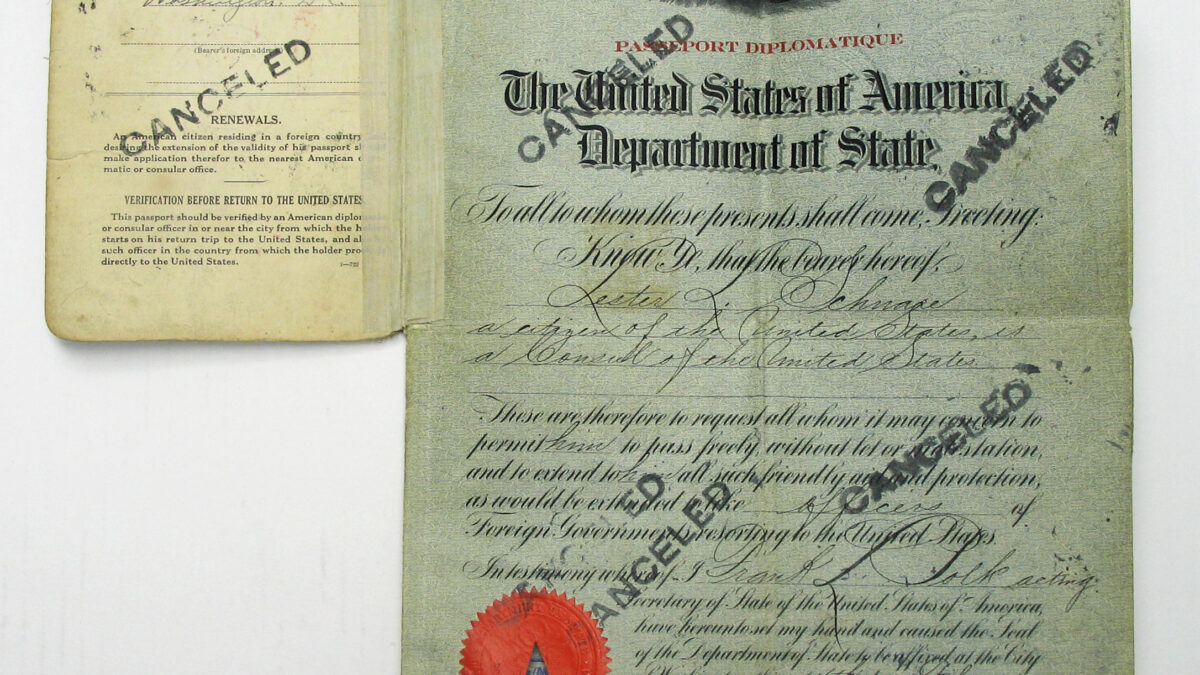 Washington, D.C.
(Bearer's foreign address)
CANCELED
RENEWALS.
An American citizen residing in a foreign country
desiring the extension of the validity of his passport
make application therefor to the nearest American
matic or consular office.
VERIFICATION BEFORE RETURN TO THE UNITED STATES
This passport should be verified by an American diplo
or consular officer in or near the city from which the
starts on his return trip to the United States, and
such officer in the country from which the holder
directly to the United States.
PASSEPORT DIPLOMATIQUE
CANCELED
CANCELED
The United States of America,
Department of State,
To all to whom these presents shall come, Greeting:
Know Ye, that the bearer hereof,
Lester L. Schnare
a citizen of the United States, is
a Consul of the United States
These are therefore to request all whom it may concern to
permit him to pass freely, without let or molestation,
and to extend to him all such friendly aid and protection,
as would be extended to like Officers of
Foreign Governments resorting to the United States
CANCELED
CANCELED
CANCELED
In testimony whereof I Frank L. Polk acting
Secretary of State of the United States of America,
have hereunto set my hand and caused the Seal
of the Department of State to be affixed at the City